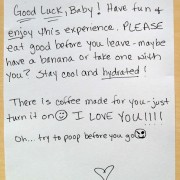 Good Luck, Baby! Have fun &
enjoy this experience. PLEASE
eat good before you leave-maybe
have a banana or take one with
you? Stay cool and hydrated!
There is coffee made for you-just
turn it on I LOVE YOU!!!!
Oh... try to poop before you go